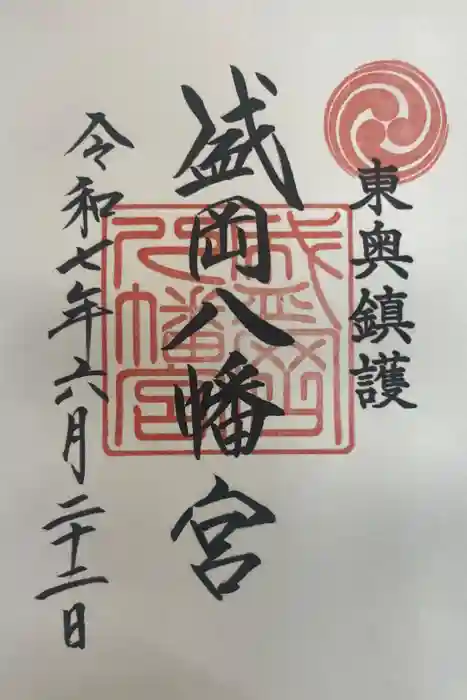 東奥鎮護
盛岡八幡宮
令和七年六月二十二日
盛岡八幡宮